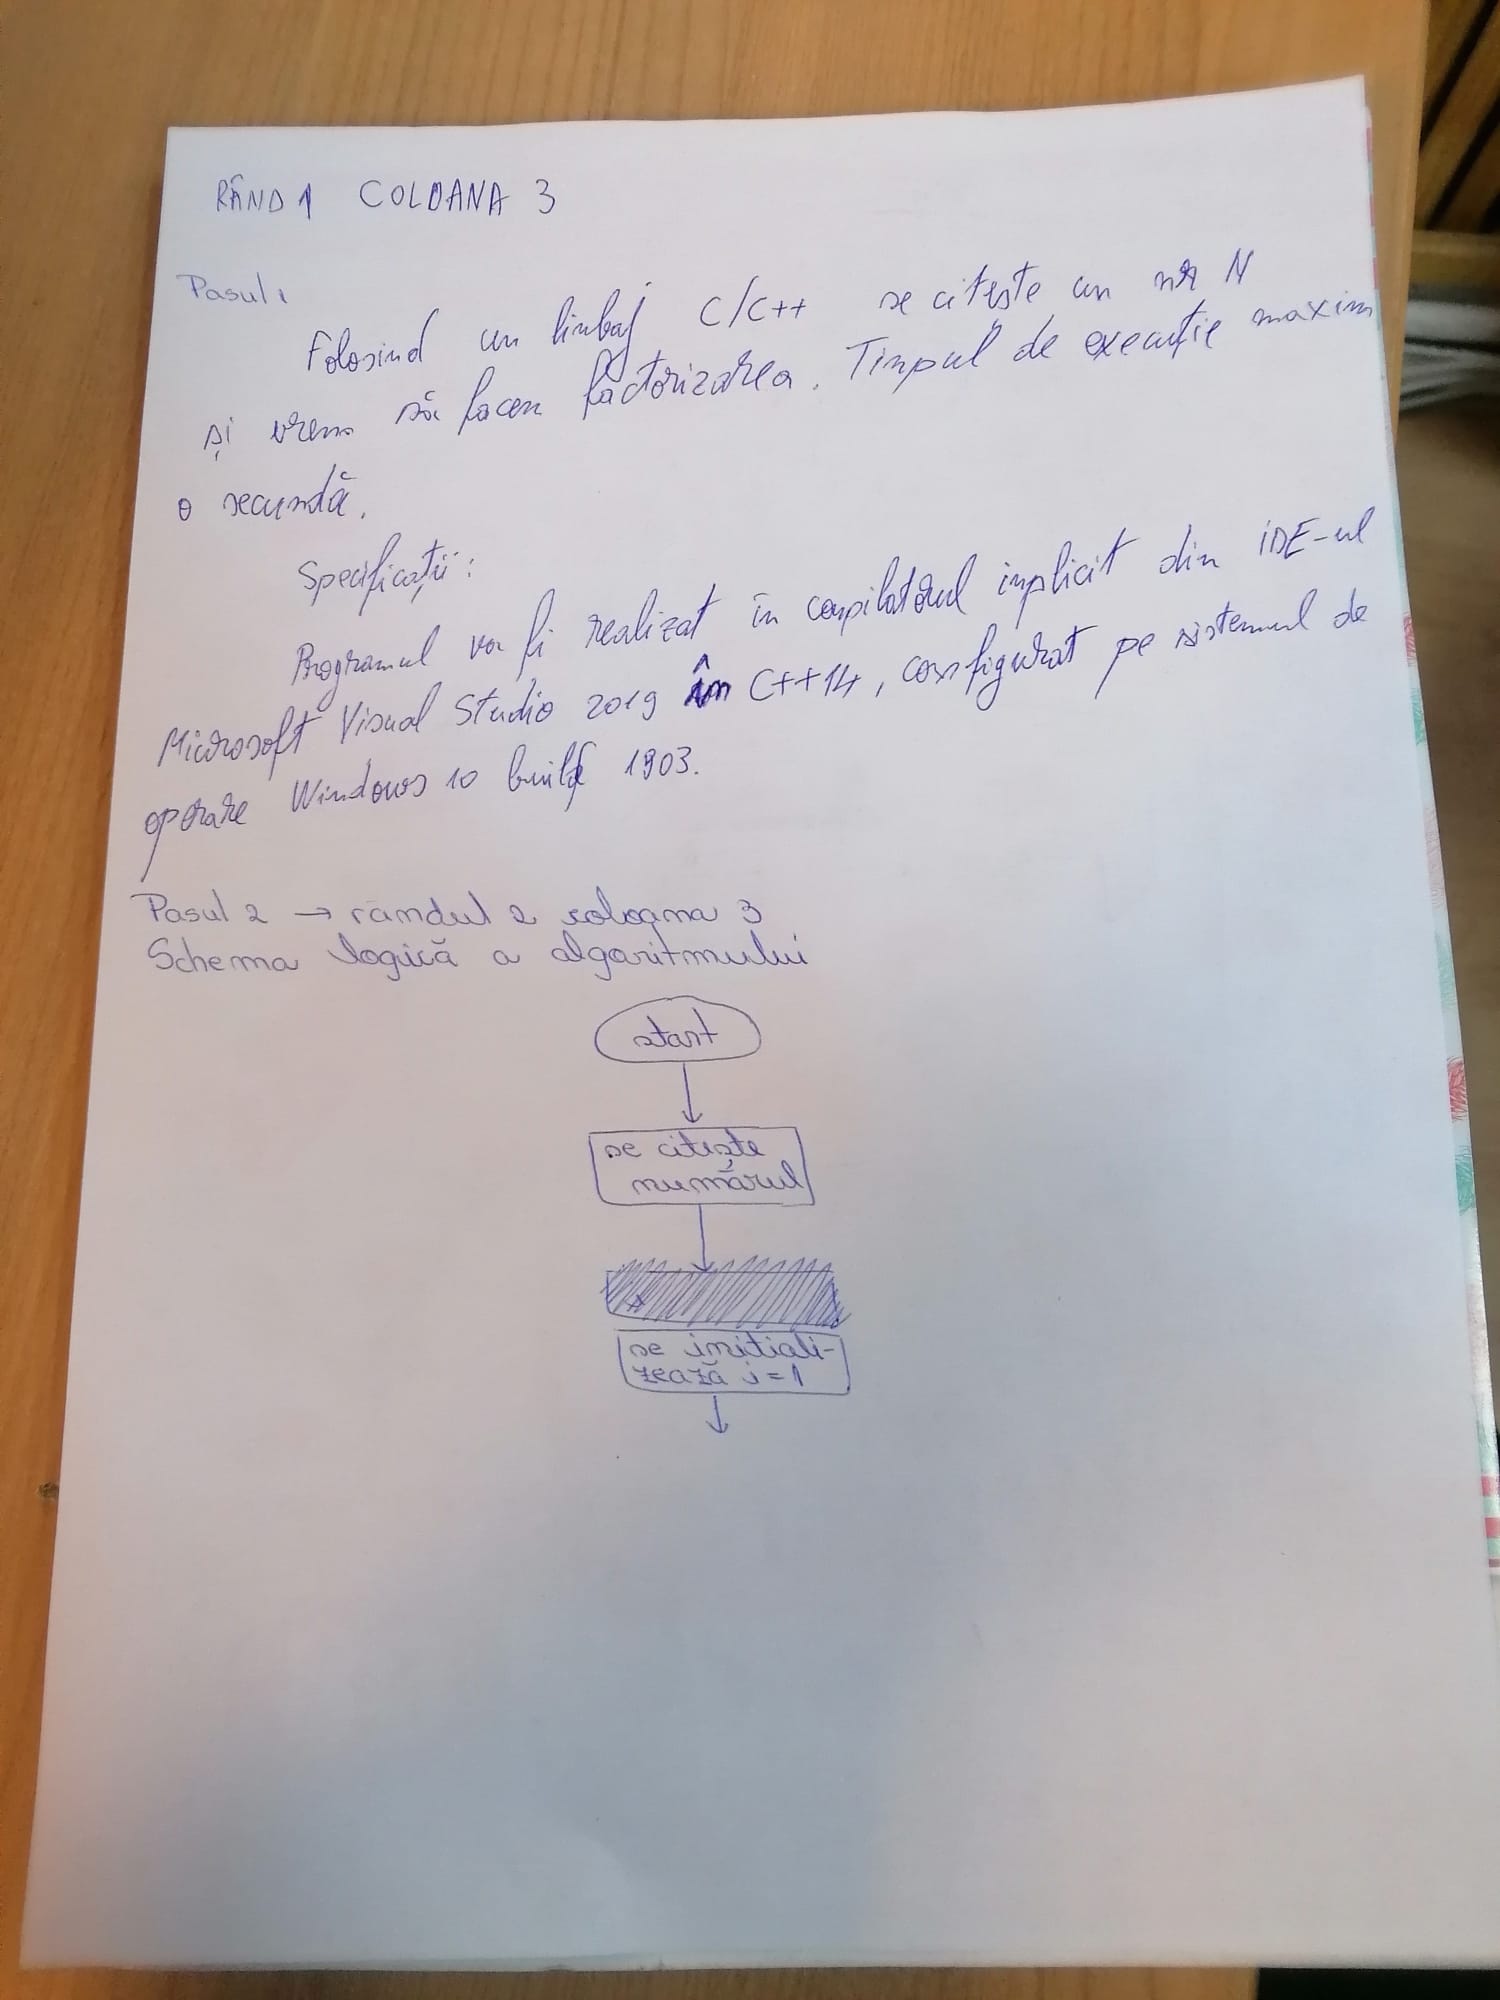 RÂND 1 COLOANA 3
Pasul 1
Folosind un limbaj C/C++ se citește un nr N
și vrem să facem factorizarea. Timpul de execuție maxim
o secundă.
Specificații:
Programul va fi realizat în compilatorul implicit din IDE-ul
Microsoft Visual Studio 2019 în C++14, configurat pe sistemul de
operare Windows 10 build 1903.
Pasul 2 → rândul 2 coloana 3
Schema logică a algoritmului
start
se citește
numărul
se initiali-
zează i=1